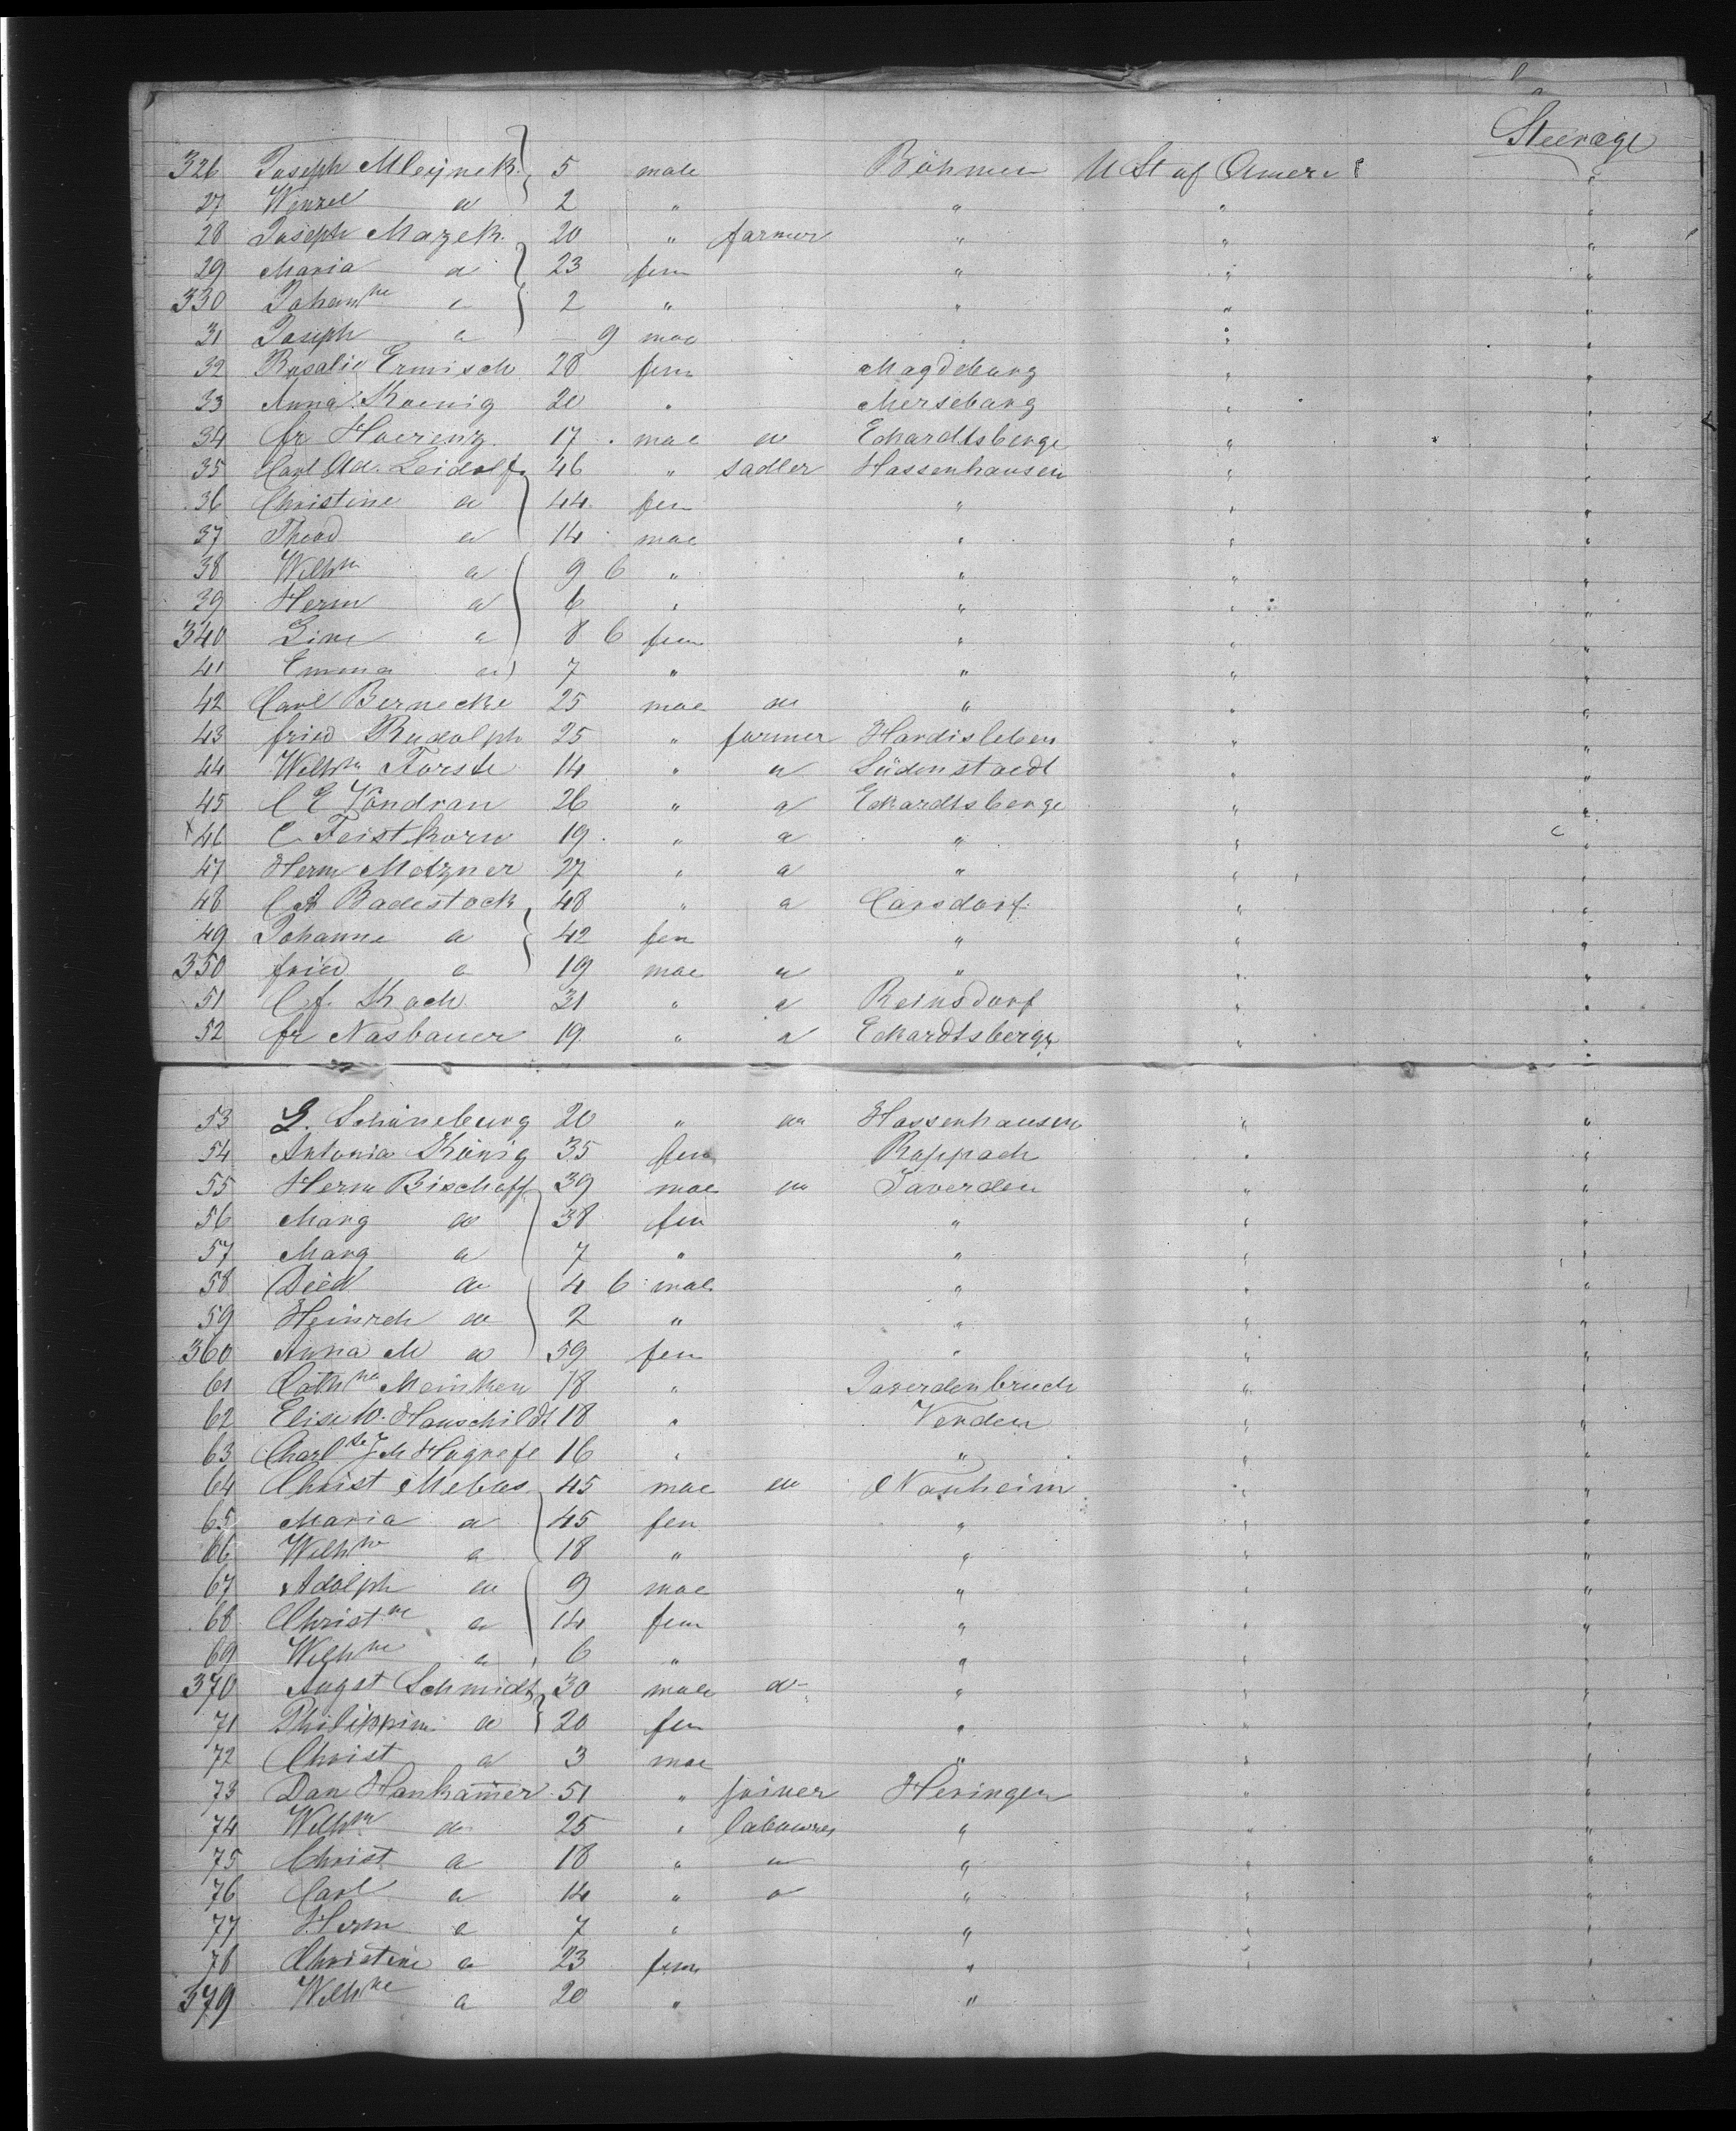 Steerage
326 Joseph Mleynek 5 male Böhmen U St of Amere
27 Wenzel a 2 " " " "
28 Joseph Mazek 20 " farmer " " "
29 Maria a 23 fem " " "
330 Johanne a 2 " " " "
31 Joseph a 9 mae " " "
32 Rosalie Ermisch 28 fem Magdeburg " "
33 Anna Koenig 20 " Merseburg " "
34 fr Hoerenz 17 mae a Eckardtsberge " "
35 Carl Ad. Leidolf 46 " sadler Hassenhausen " "
36 Christine a 44 fem " " "
37 Theod a 14 mae " " "
38 Wilhm a 9 6 " " " "
39 Herm a 6 " " " "
340 Line a 8 6 fem " " "
41 Emma a 7 " " " "
42 Carl Bernecke 25 mae a " " "
43 fried Rudolph 25 " farmer Hardisleben " "
44 Wilhm Forste 14 " a Südenstaedt " "
45 C E Vondran 26 " a Eckardtsberge " "
46 C Feistkorn 19 " a " " "
47 Herm Metzner 27 " a " " "
48 C A Badestock 48 " a Carsdorf " "
49 Johanne a 42 fem " " "
350 fried a 19 mae a " " "
51 C f. Koch 31 " a Reinsdorf " "
52 fr Nasbauer 19 " a Eckardtsberge " "
53 L. Schöneburg 20 " a Hassenhausen " "
54 Antonia König 35 fem Rappach " "
55 Herm Bischoff 39 mae a Taverden " "
56 Marg a 38 fem " " "
57 Marg a 7 " " " "
58 Died a 4 6 male " " "
59 Heinrch a 2 " " " "
360 Anna M a 59 fem " " "
61 Cathne Meinken 18 " Taverdenbruch " "
62 Elise W. Hauschildt 18 " Verden " "
63 Charlte J M Hugrefe 16 " " " "
64 Christ Mebus 45 mae a Nauheim " "
65 Maria a 45 fem " " "
66 Wilhne a 18 " " " "
67 Adolph a 9 mae " " "
68 Christne a 14 fem " " "
69 Wilhne a 6 " " " "
370 Augst Schmidt 30 male a " " "
71 Philippine a 20 fem " " "
72 Christ a 3 mae " " "
73 Dan Hankammer 51 " joiner Heringen " "
74 Wilhm a 25 " labourer " " "
75 Christ a 18 " a " " "
76 Carl a 14 " a " " "
77 Herm a 7 " " " "
78 Christine a 23 fem " " "
379 Wilhne a 20 " "